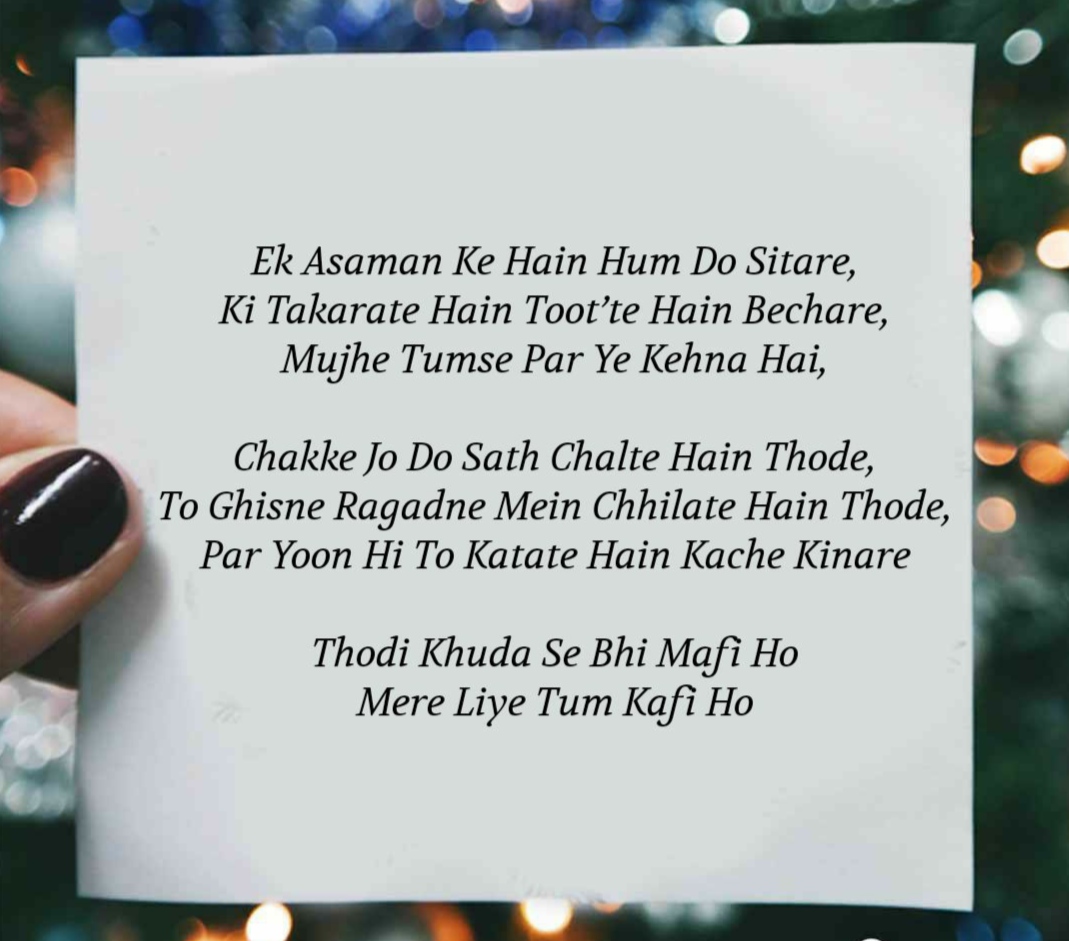 Ek Asaman Ke Hain Hum Do Sitare,
Ki Takarate Hain Toot’te Hain Bechare,
Mujhe Tumse Par Ye Kehna Hai,
Chakke Jo Do Sath Chalte Hain Thode,
To Ghisne Ragadne Mein Chhilate Hain Thode,
Par Yoon Hi To Katate Hain Kache Kinare
Thodi Khuda Se Bhi Mafi Ho
Mere Liye Tum Kafi Ho